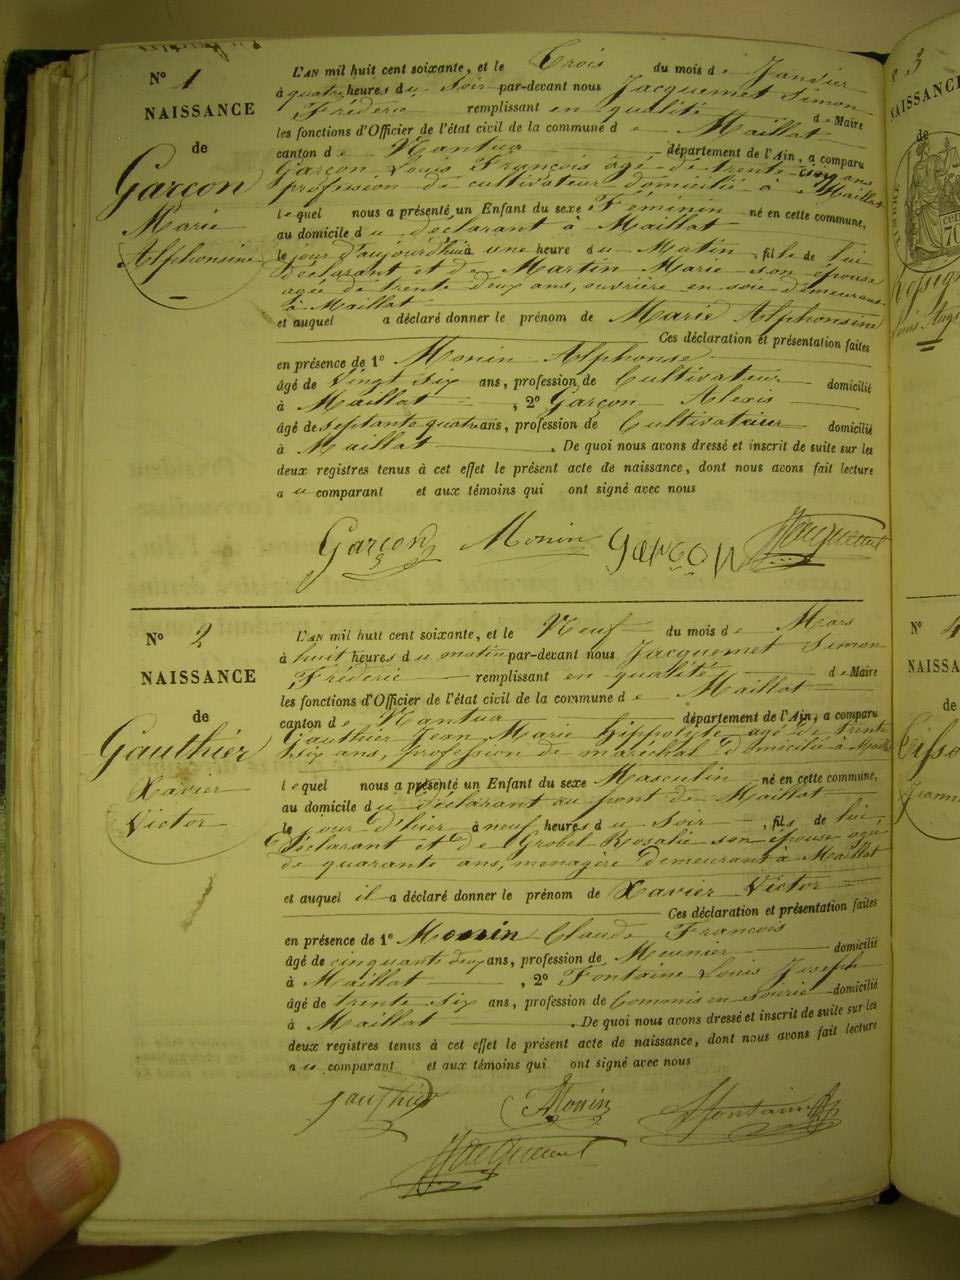 N° 1
NAISSANCE
de
Garçon
Marie
Alphonsine
L'AN mil huit cent soixante, et le Trois du mois de Janvier
à quatre heures du Soir par-devant nous Jacquemet Simon
Fréderic remplissant en qualité de Maire
les fonctions d'Officier de l'état civil de la commune de Maillat
canton de Nantua département de l'Ain, a comparu
Garçon Louis François âgé de trente cinq ans
profession de cultivateur domicilié à Maillat
lequel nous a présenté un Enfant du sexe Feminin né en cette commune,
au domicile du declarant à Maillat
le jour d'aujourd'hui à une heure du Matin, fille de lui
Déclarant et de Martin Marie son épouse
agée de trente deux ans, ouvrière en soie demeurant
à Maillat
et auquel a déclaré donner le prénom de Marie Alphonsine
Ces déclaration et présentation faites
en présence de 1° Monin Alphonse
âgé de vingt six ans, profession de Cultivateur domicilié
à Maillat, 2° Garçon Alexis
âgé de septante quatre ans, profession de Cultivateur domicilié
à Maillat. De quoi nous avons dressé et inscrit de suite sur les
deux registres tenus à cet effet le présent acte de naissance, dont nous avons fait lecture
au comparant et aux témoins qui ont signé avec nous
Garçon Monin garçon Jacquemet
N° 2
NAISSANCE
de
Gauthier
Xavier
Victor
L'AN mil huit cent soixante, et le Neuf du mois de Mars
à huit heures du matin par-devant nous Jacquemet Simon
Fréderic remplissant en qualité de Maire
les fonctions d'Officier de l'état civil de la commune de Maillat
canton de Nantua département de l'Ain, a comparu
Gauthier Jean Marie Hippolyte agé de trente
six ans, profession de maréchal domicilié à Maillat
lequel nous a présenté un Enfant du sexe Masculin né en cette commune,
au domicile du déclarant au pont de Maillat
le jour d'hier à neuf heures du Soir, fils de lui,
Déclarant et de Grobel Rosalie son épouse agée
de quarante ans, menagère demeurant à Maillat
et auquel il a déclaré donner le prénom de Xavier Victor
Ces déclaration et présentation faites
en présence de 1° Monin Claude François
âgé de cinquante deux ans, profession de Meunier domicilié
à Maillat, 2° Fontaine Louis Joseph
âgé de trente six ans, profession de Commis en domicilié
à Maillat. De quoi nous avons dressé et inscrit de suite sur les
deux registres tenus à cet effet le présent acte de naissance, dont nous avons fait lecture
au comparant et aux témoins qui ont signé avec nous
gauthier Monin Fontaine
Jacquemet
3
NAISSANCE
de
N° 4
NAISSA
de